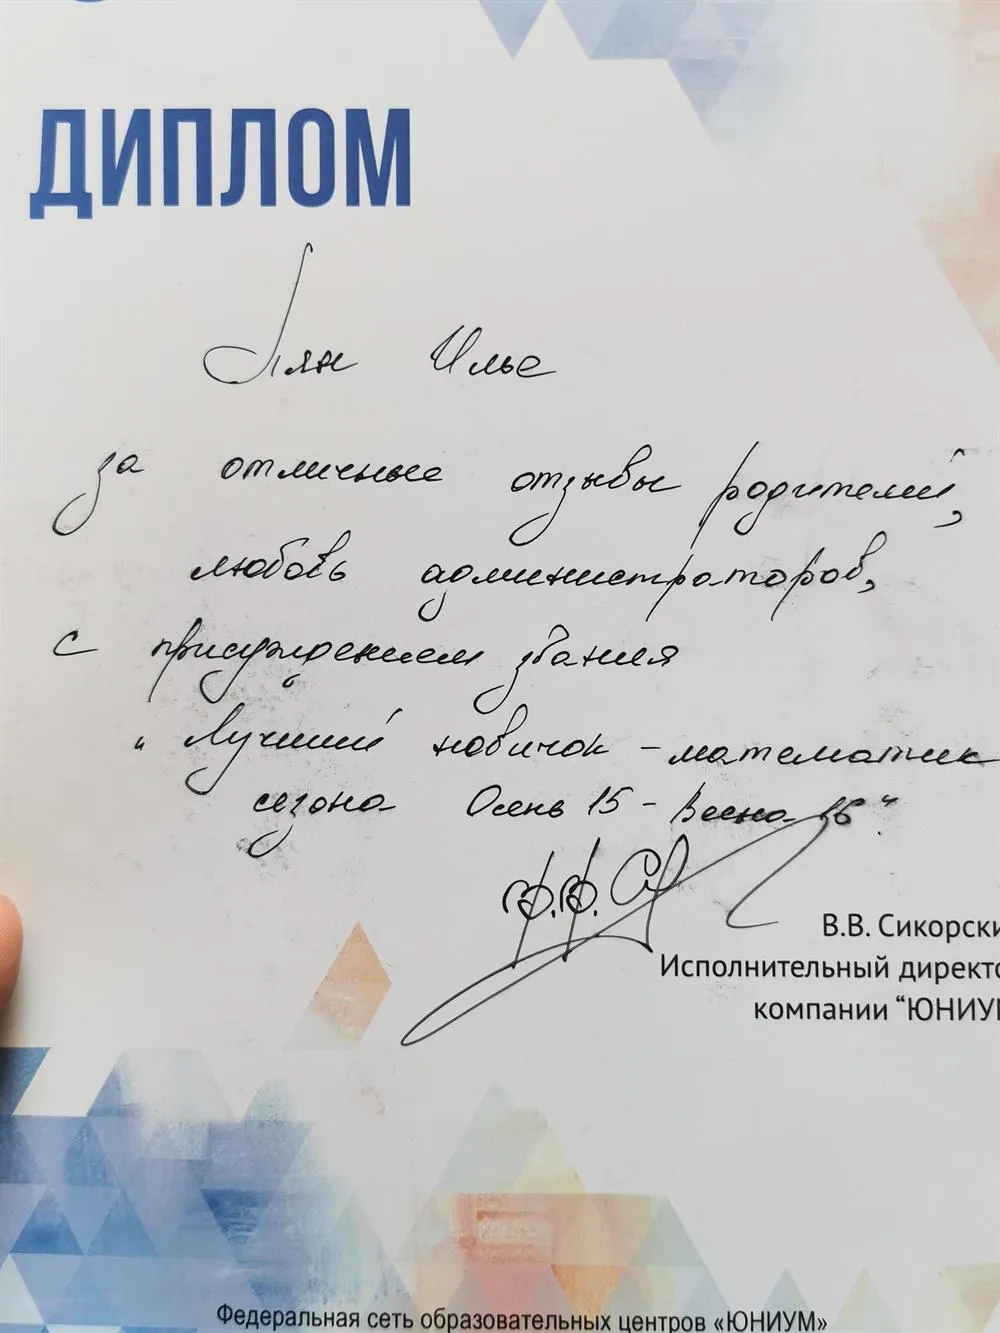 ДИПЛОМ
Лян Илье
за отличные отзывы родителей,
любовь администраторов,
с присуждением звания
"Лучший новичок - математик
сезона Осень 15 - Весна 16"
В.В. Сикорски
Исполнительный директо
компании "ЮНИУМ
Федеральная сеть образовательных центров «ЮНИУМ»